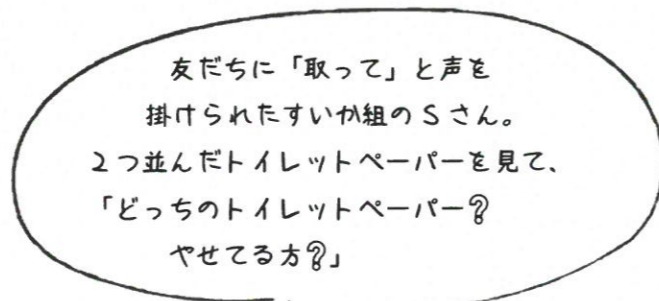 友だちに「取って」と声を
掛けられたすいか組のSさん。
2つ並んだトイレットペーパーを見て、
「どっちのトイレットペーパー?
やせてる方?」